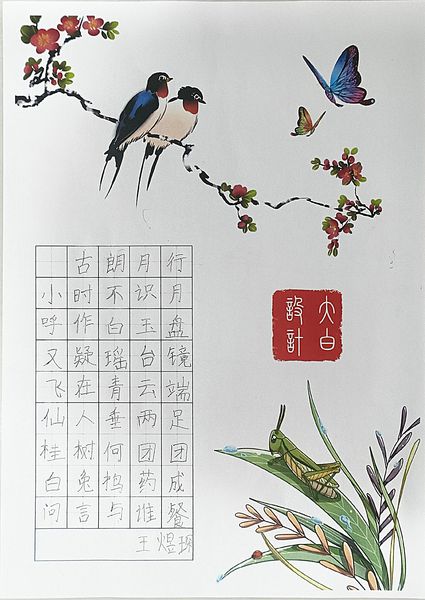 古朗月行
小时不识月
呼作白玉盘
又疑瑶台镜
飞在青云端
仙人垂两足
桂树何团团
白兔捣药成
问言与谁餐
王煜琛
大白
設計